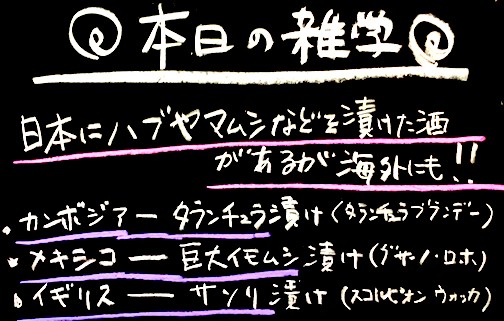 本日の雑学
日本にハブやマムシなどを漬けた酒
があるが海外にも!!
・カンボジアータランチュラ漬け(タランチュラブランデー)
・メキシコー巨大イモムシ漬け(グサーノ・ロホ)
・イギリスーサソリ漬け(スコルピオンウォッカ)